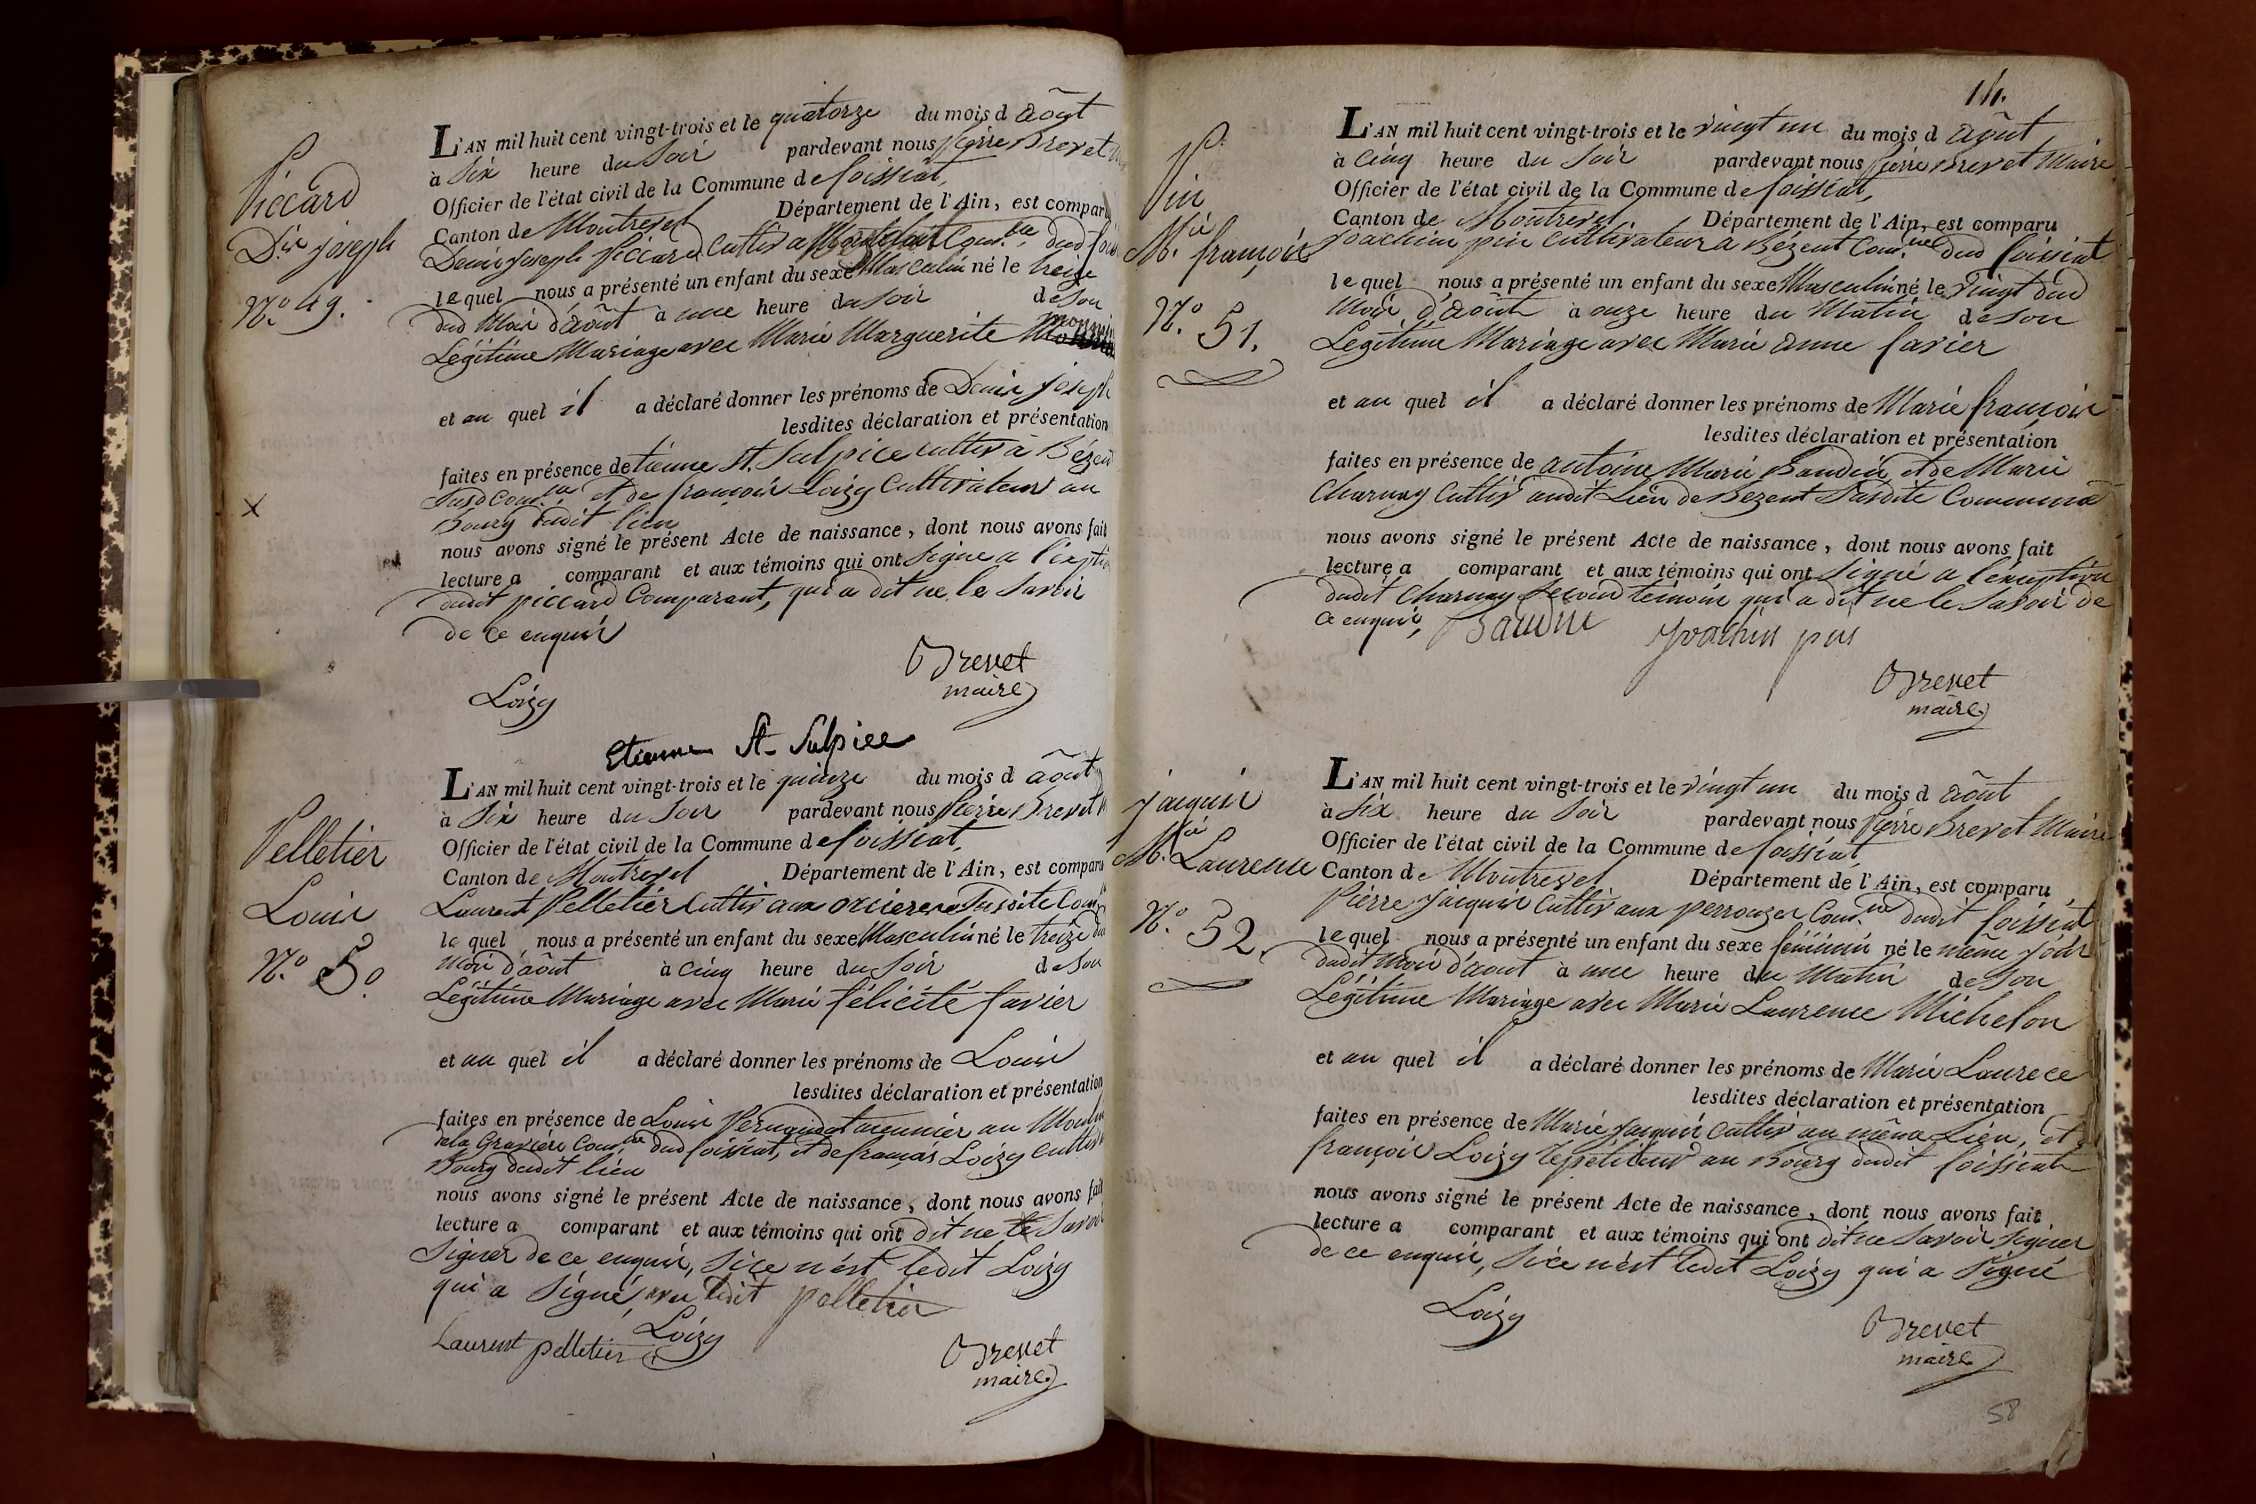 Piccard
Dis joseph
N.o 49.
L'AN mil huit cent vingt-trois et le quatorze du mois d août
à Six heure du Soir pardevant nous Pierre Brevet
Officier de l'état civil de la Commune de foissiat,
Canton de Montrevel Département de l'Ain, est comparu
Denis joseph Piccard Cultiv a Com.ne dud
le quel nous a présenté un enfant du sexe Masculin né le treize
dud Mois d'août à une heure du Soir de Son
Légitime Mariage avec Marie Marguerite monnin
et au quel il a déclaré donner les prénoms de Denis joseph
lesdites déclaration et présentation
faites en présence de tienne St. Sulpice cultiv à Bézent
Susd Com.ne et de françois Loizy Cultivateur au
Bourg dudit lieu
nous avons signé le présent Acte de naissance, dont nous avons fait
lecture a comparant et aux témoins qui ont Signé a
dudit piccard Comparant, qui a dit ne le Savoir
de ce enquis
Brevet
maire
Loizy
Etienne St- Sulpice
Pelletier
Louis
N.o 50.
L'AN mil huit cent vingt-trois et le quinze du mois d août
à Six heure du Soir pardevant nous Pierre Brevet
Officier de l'état civil de la Commune de foissiat,
Canton de Montrevel Département de l'Ain, est comparu
Laurent Pelletier Cultiv aux Susdite Com
le quel nous a présenté un enfant du sexe Masculin né le treize dud
Mois d'août à Cinq heure du Soir de Son
Légitime Mariage avec Marie félicité favier
et au quel il a déclaré donner les prénoms de Louis
lesdites déclaration et présentation
faites en présence de Louis meunier au Moulin
de la Gravière Com.ne dud foissiat, et de françois Loizy Cultiv
Bourg dudit lieu
nous avons signé le présent Acte de naissance, dont nous avons fait
lecture a comparant et aux témoins qui ont dit ne le Savoir
Signer de ce enquis, Si ce n'est ledit Loizy
qui a Signé avec ledit pelletier
Laurent pelletier Loizy
Brevet
maire
14.
Pin
M.ie françois
N.o 51.
L'AN mil huit cent vingt-trois et le vingt un du mois d août
à Cinq heure du Soir pardevant nous Pierre Brevet Maire
Officier de l'état civil de la Commune de foissiat,
Canton de Montrevel, Département de l'Ain, est comparu
Joachim pin Cultivateur a Bézent Com.ne dud foissiat
le quel nous a présenté un enfant du sexe Masculin né le vingt dud
Mois d'août à onze heure du Matin de Son
Légitime Mariage avec Marie anne favier
et au quel il a déclaré donner les prénoms de Marie françois
lesdites déclaration et présentation
faites en présence de antoine Marie Baudin et de Marie
Charnay Cultiv audit Lieu de Bezent Susdite Commune
nous avons signé le présent Acte de naissance, dont nous avons fait
lecture a comparant et aux témoins qui ont Signé a l'éxception
dudit Charnay Second témoin qui a dit ne le Savoir de
ce enquis,
Baudin Joachin pin
Brevet
maire
jacquin
M.ie Laurence
N.o 52.
L'AN mil huit cent vingt-trois et le vingt un du mois d août
à Six heure du Soir pardevant nous Pierre Brevet Maire
Officier de l'état civil de la Commune de foissiat
Canton de Montrevel Département de l'Ain, est comparu
Pierre Jacquin Cultiv aux perrouzes Com.ne dudit foissiat
le quel nous a présenté un enfant du sexe féminin né le même jour
dudit Mois d'aout à une heure du Matin de Son
Légitime Mariage avec Marie Laurence Michelon
et au quel il a déclaré donner les prénoms de Marie Laurece
lesdites déclaration et présentation
faites en présence de Marie Jacquin Cultiv au même Lieu, et
françois Loizy Répétiteur au Bourg dudit foissiat
nous avons signé le présent Acte de naissance, dont nous avons fait
lecture a comparant et aux témoins qui ont dit ne Savoir Signer
de ce enquis, Si ce n'est ledit Loizy qui a Signé
Loizy
Brevet
maire
58